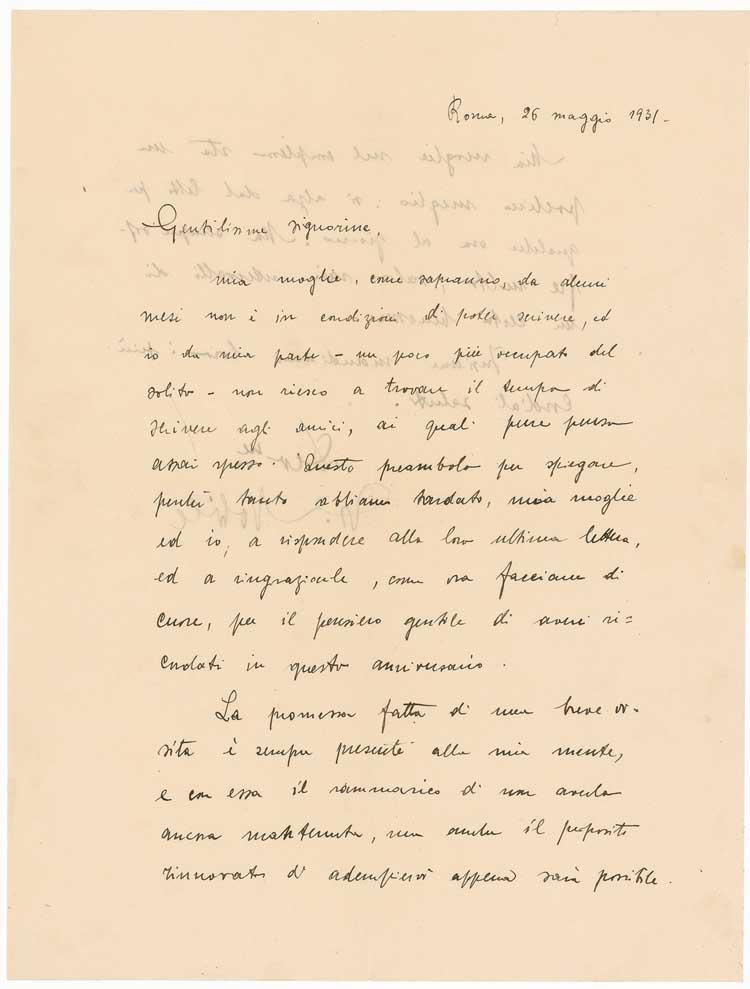 Roma, 26 maggio 1931 -
Gentilissime signorine,
mia moglie, come sapranno, da alcuni
mesi non è in condizioni di poter scrivere, ed
io da mia parte - un poco più occupato del
solito - non riesco a trovare il tempo di
scrivere agli amici, ai quali pure penso
assai spesso. Questo preambolo per spiegare,
perché tanto abbiamo tardato, mia moglie
ed io, a rispondere alla loro ultima lettera,
ed a ringraziarle, come ora facciamo di
cuore, per il pensiero gentile di averci ri=
cordati in questo anniversario.
La promessa fatta di una breve vi-
sita è sempre presente alla mia mente,
e con essa il rammarico di non averla
ancora mantenuta, ma anche il proposito
rinnovato di adempiervi appena sarà possibile.